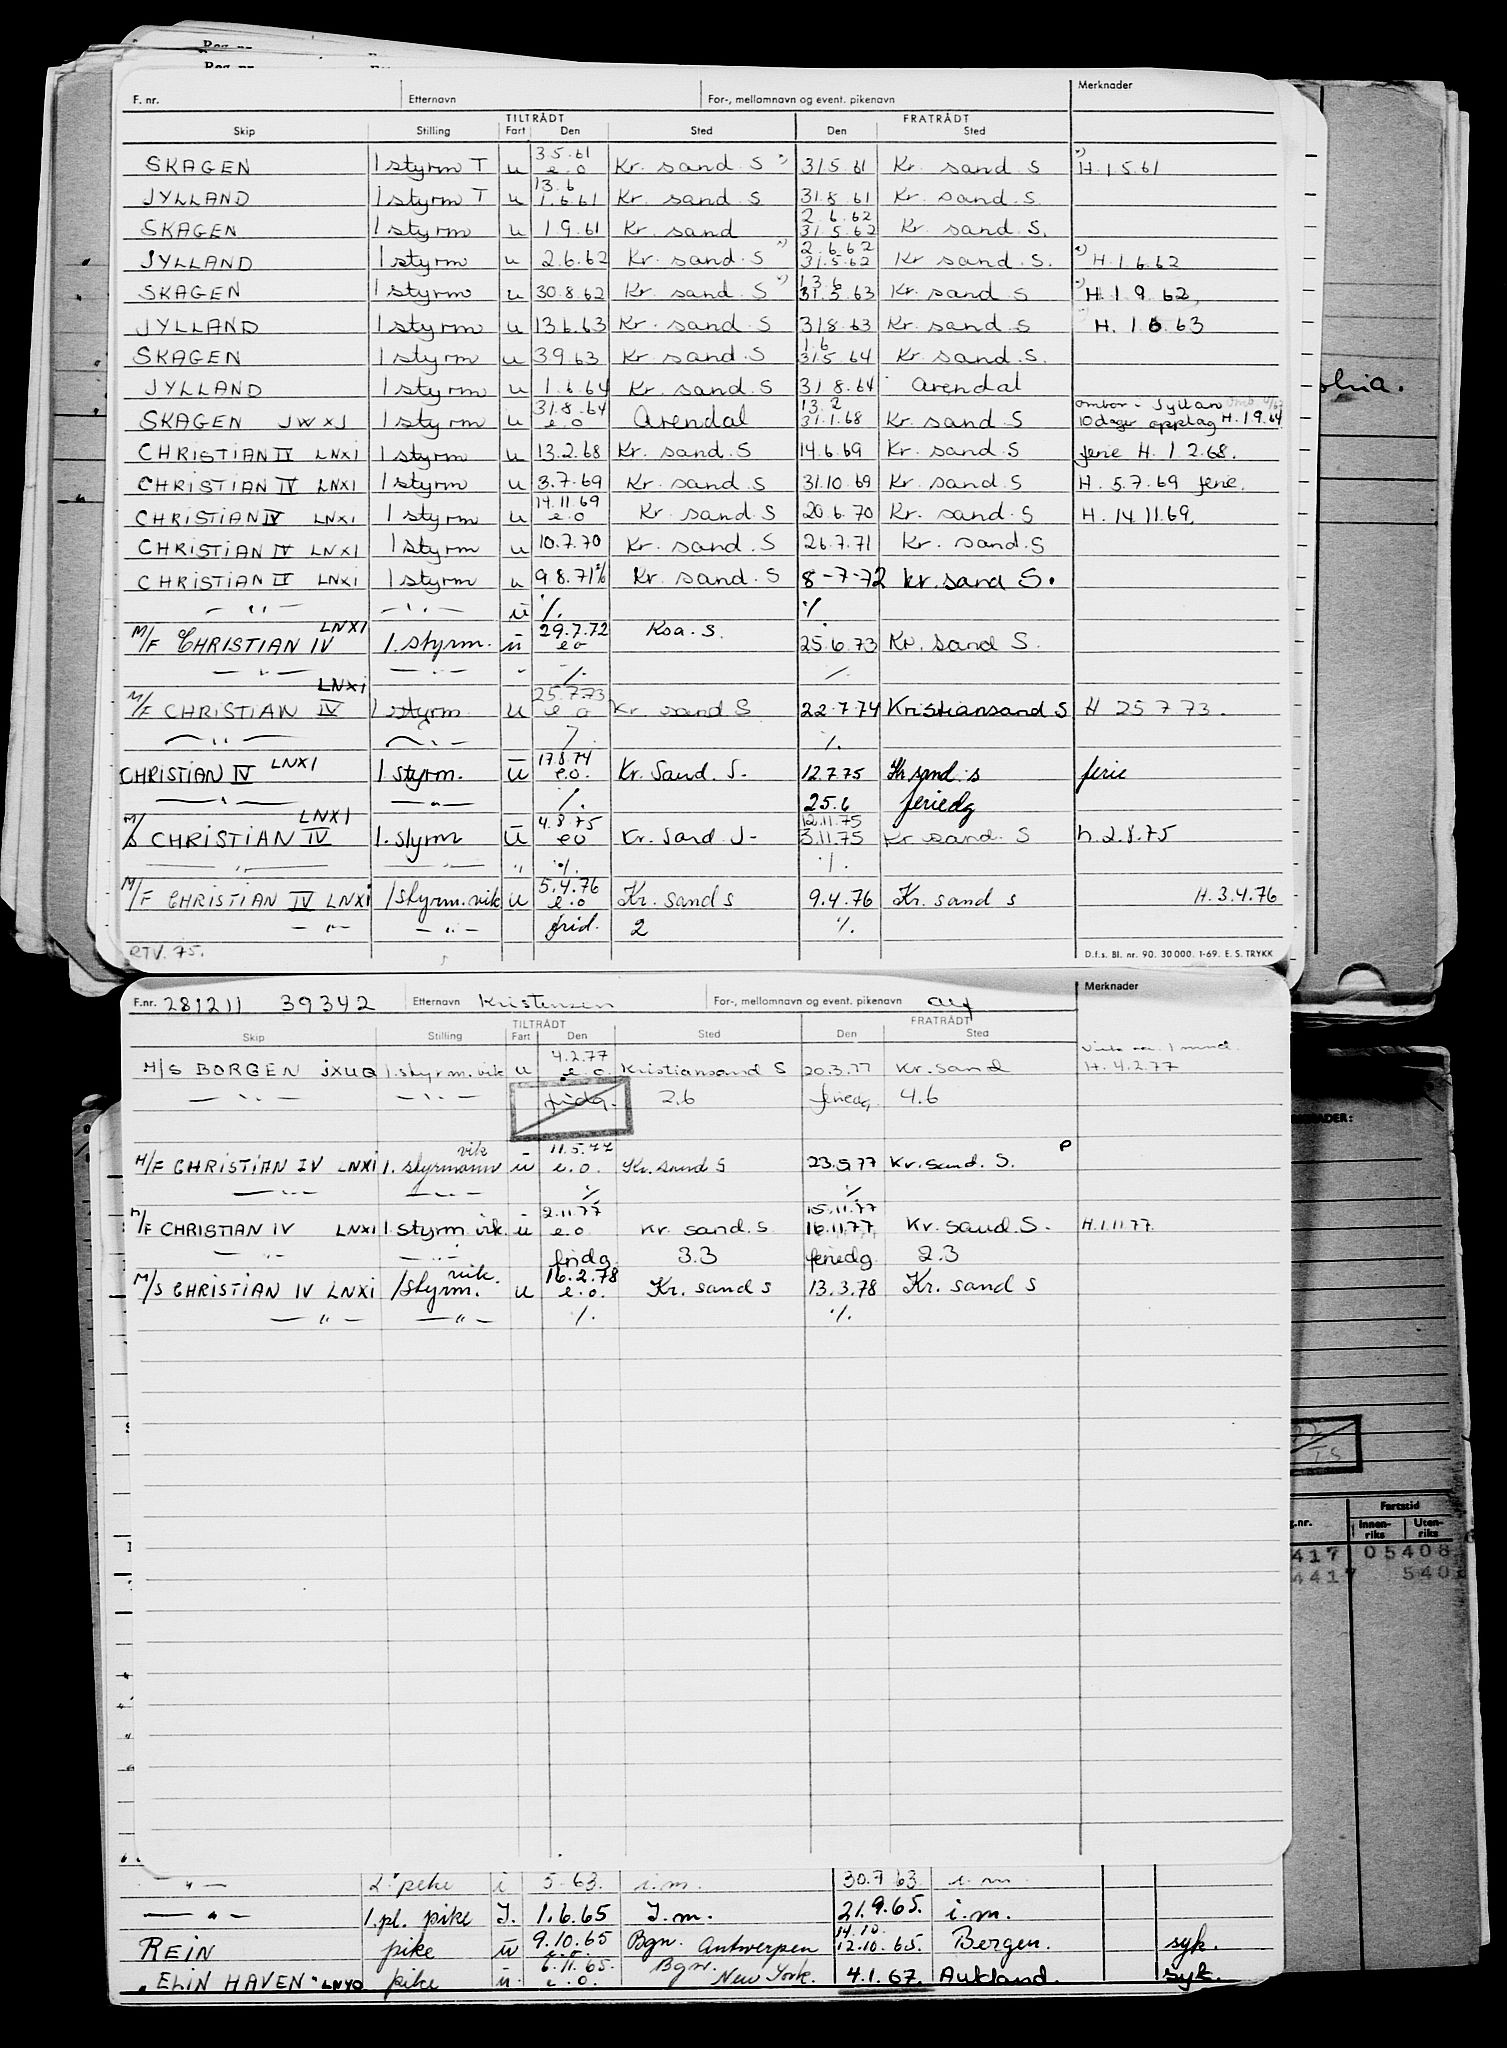 Reg. nr.
Reg. nr.
F. nr. Etternavn For-, mellomnavn og event. pikenavn Merknader
TILTRÅDT FRATRÅDT
Skip Stilling Fart Den Sted Den Sted
SKAGEN 1 styrm T u 3.5.61 e.o Kr. sand. S *) 31.5.61 Kr. sand S *) H. 1.5.61
JYLLAND 1 styrm T u 13.6 1.6.61 Kr. sand. S 31.8.61 Kr. sand. S.
SKAGEN 1 styrm u 1 9.61 Kr. sand 2.6.62 31.5.62 Kr. sand S.
JYLLAND 1 styrm u 2.6.62 Kr. sand. S *) 2.6.62 31.5.62 Kr sand S. *) H. 1.6.62
SKAGEN 1 styrm u 30.8.62 Kr. sand S *) 13.6 31.5.63 Kr. sand S *) H. 1 9 62,
JYLLAND 1 styrm u 13.6.63 Kr. sand S 31.8.63 Kr. sand S H. 1 6 63
SKAGEN 1 styrm u 3.9.63 Kr. sand S 1.6 31.5.64 Kr. sand. S.
JYLLAND 1 styrm u 1.6.64 Kr. sand S 31.8.64 Arendal
SKAGEN JWXJ 1 styrm u 31.8.64 e.o Arendal 13.2 31.1.68 Kr. sand S 10 dager opplag H. 1 9 64
CHRISTIAN IV LNXI 1 styrm u 13.2.68 Kr. sand. S 14.6.69 Kr. sand S ferie H. 1. 2. 68.
CHRISTIAN IV LNXI 1 styrm u 3.7.69 Kr. sand S 31.10.69 Kr. sand. S H. 5.7.69 ferie.
CHRISTIAN IV LNXI 1 styrm u 14.11.69 e.o Kr. sand S 20.6.70 Kr. sand S H. 14 11.69.
CHRISTIAN IV LNXI 1 styrm u 10.7.70 Kr. sand. S 26.7.71 Kr. sand. S
CHRISTIAN IV LNXI 1 styrm u 9.8.71 % Kr. sand. S 8-7-72 kr. sand S.
— " — — " — u %. %
M/F CHRISTIAN IV LNXI 1. styrm. u 29.7.72 eo Ksa. S. 25.6.73 Kr. sand S.
— " — — " — %. %
M/F CHRISTIAN IV LNXI 1 styrm. u 25.7.73 e o Kr sand S 22.7.74 Kristiansand S H 25 7 73.
— " — — " — %. %.
CHRISTIAN IV LNXI 1 styrm. u 17.8.74 e.o. Kr. Sand. S. 12.7.75 Kr sand s ferie
— " — — " — %. 25.6 feriedg
M/S CHRISTIAN IV LNXI 1. styrm u 4.8.75 eo Kr. Sand S- 12.11.75 3.11.75 Kr sand. S h. 2.8.75
— " — — " — " %. %.
M/F CHRISTIAN IV LNXI 1 styrm. vik u 5.4.76 e.o Kr. sand s 9.4.76 Kr. sand s H. 3.4.76
— " — — " — frid. 2 %.
RTV. 75. D.f.s. Bl. nr. 90. 30000. 1-69. E. S. TRYKK
F.nr. 281211 39342 Etternavn Kristensen For-, mellomnavn og event. pikenavn Alf Merknader
TILTRÅDT FRATRÅDT
Skip Stilling Fart Den Sted Den Sted
M/S BORGEN JXUQ 1. styrm. vik u 4.2.77 e.o. Kristiansand S 20.3.77 Kr. sand H. 4.2.77
— " — — " — fridg. 2.6 feriedg. 4.6
M/F CHRISTIAN IV LNXI 1. styrmann vik u 11.5.77 e.o. Kr. sand S 23.5.77 Kr. sand. S. P
— " — — " — % %
M/F CHRISTIAN IV LNXI 1. styrm vik. u 2.11.77 e.o. Kr. sand. S 15.11.77 16.11.77 Kr. sand S. H. 1.11.77.
— " — — " — fridg. 3.3 feriedg 2.3
M/S CHRISTIAN IV LNXI 1 styrm. vik. u 16.2.78 e.o. Kr. sand s 13.3.78 Kr. sand s
— " — — " — %. %.
Fartstid
g.nr. Innen-riks Uten-riks
417 05408
4417 540
— " — 2. pike i 5.63. i.m. 30.7 63. i.m.
— " — 1. pl. pike I. 1.6.65 I.m. 21.9.65. i.m.
REIN pike u 9.10.65 e.o. Bgn. Antwerpen 14.10. 12.10.65. Bergen. syk.
"ELIN HAVEN" LNYO pike u. 6.11.65. e.o. Bgn. New York. 4.1.67. Aukland. syk.